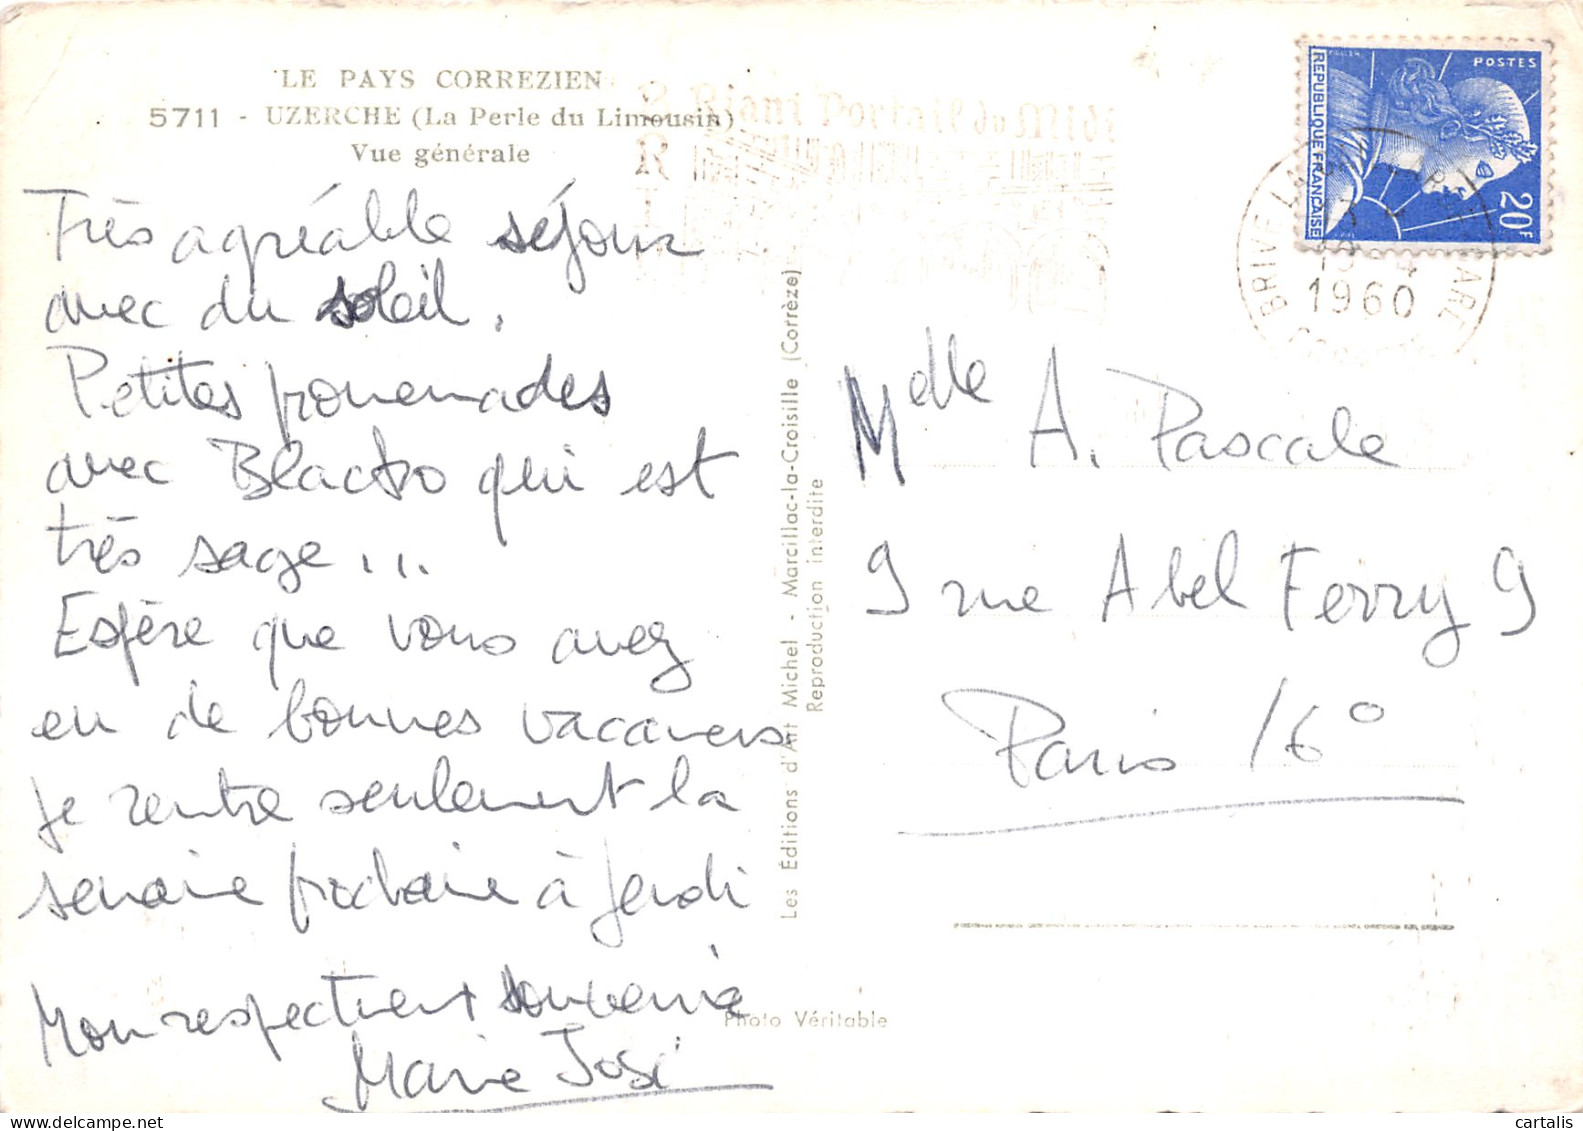 LE PAYS CORREZIEN
5711 - UZERCHE (La Perle du Limousin)
Vue générale
Très agréable séjour
avec du soleil.
Petites promenades
avec qui est
très sage...
Espère que vous avez
eu de bonnes vacances.
Je rentre seulement la
semaine prochaine à jeudi
Mon respectueux souvenir
Marie José
Les Éditions d'Art Michel - Marcillac-la-Croisille (Corrèze)
Reproduction interdite
Photo Véritable
Riant Portail du Midi
POSTES
REPUBLIQUE FRANÇAISE
20F
BRIVE LA GAILLARDE
1960
Melle A. Pascale
9 rue Abel Ferry 9
Paris 16°
cartalis